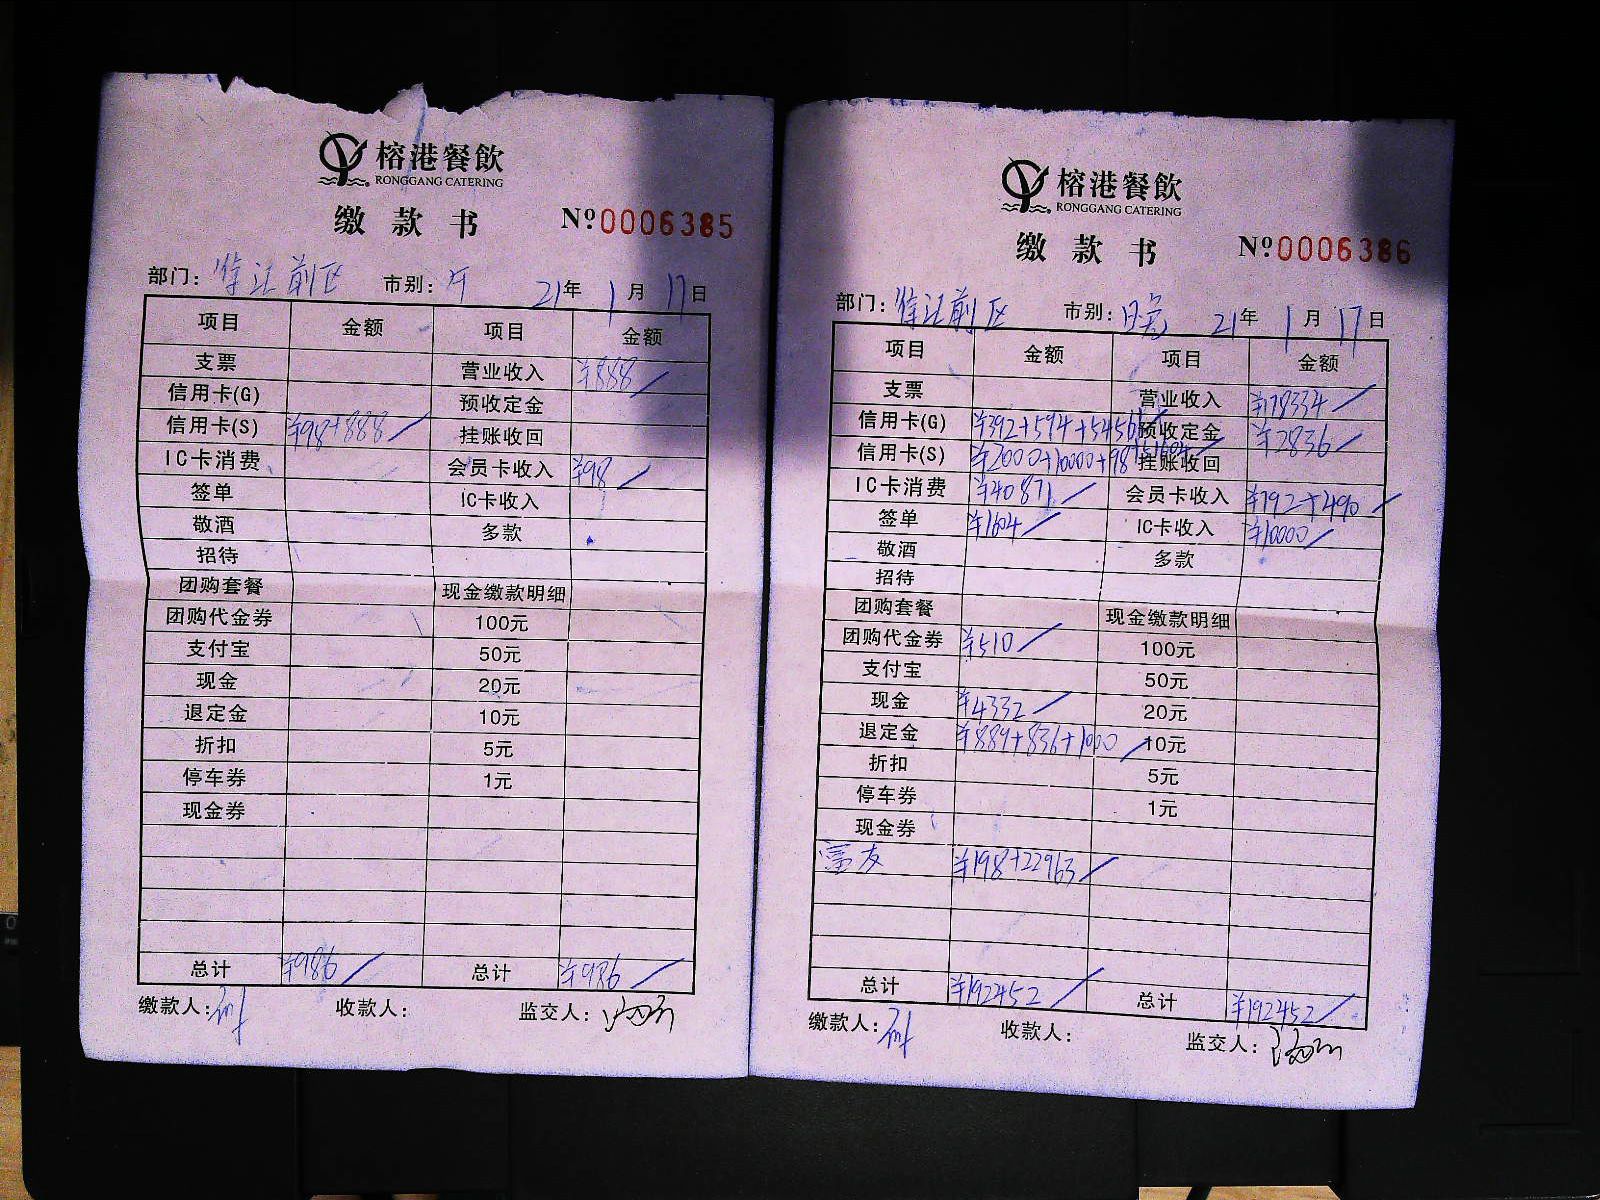 榕港餐飲
RONGGANG CATERING
缴款书
№0006385
部门: 徐汇前区 市别: 午 21年 1月 17日
项目 金额 项目 金额
支票 营业收入 ¥888
信用卡(G) 预收定金
信用卡(S) ¥98+888 挂账收回
IC卡消费 会员卡收入 ¥98
签单 IC卡收入
敬酒 多款
招待
团购套餐 现金缴款明细
团购代金券 100元
支付宝 50元
现金 20元
退定金 10元
折扣 5元
停车券 1元
现金券
总计 ¥986 总计 ¥986
缴款人: 收款人: 监交人:
榕港餐飲
RONGGANG CATERING
缴款书
№0006386
部门: 徐汇前区 市别: 晚 21年 1月 17日
项目 金额 项目 金额
支票 营业收入 ¥178334
信用卡(G) ¥392+594+54566 预收定金 ¥2836
信用卡(S) ¥2000+10000+98 挂账收回
IC卡消费 ¥40871 会员卡收入 ¥792+490
签单 ¥1604 IC卡收入 ¥10000
敬酒 多款
招待
团购套餐 现金缴款明细
团购代金券 ¥510 100元
支付宝 50元
现金 ¥4332 20元
退定金 ¥889+836+1000 10元
折扣 5元
停车券 1元
现金券
¥198+22963
总计 ¥192452 总计 ¥192452
缴款人: 收款人: 监交人: